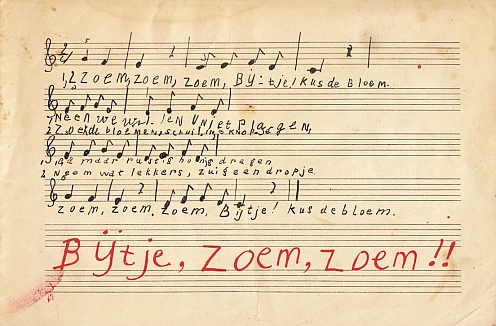 1,2 zoem, zoem, zoem, Bijtje! kus de bloem.
1, Neen we willen U niet plagen,
2, 
1, ga maar rustig honig dragen
2 Neem wat lekkers, zuig een dropje.
zoem, zoem, zoem, Bijtje! kus de bloem.
Bijtje, zoem, zoem!!